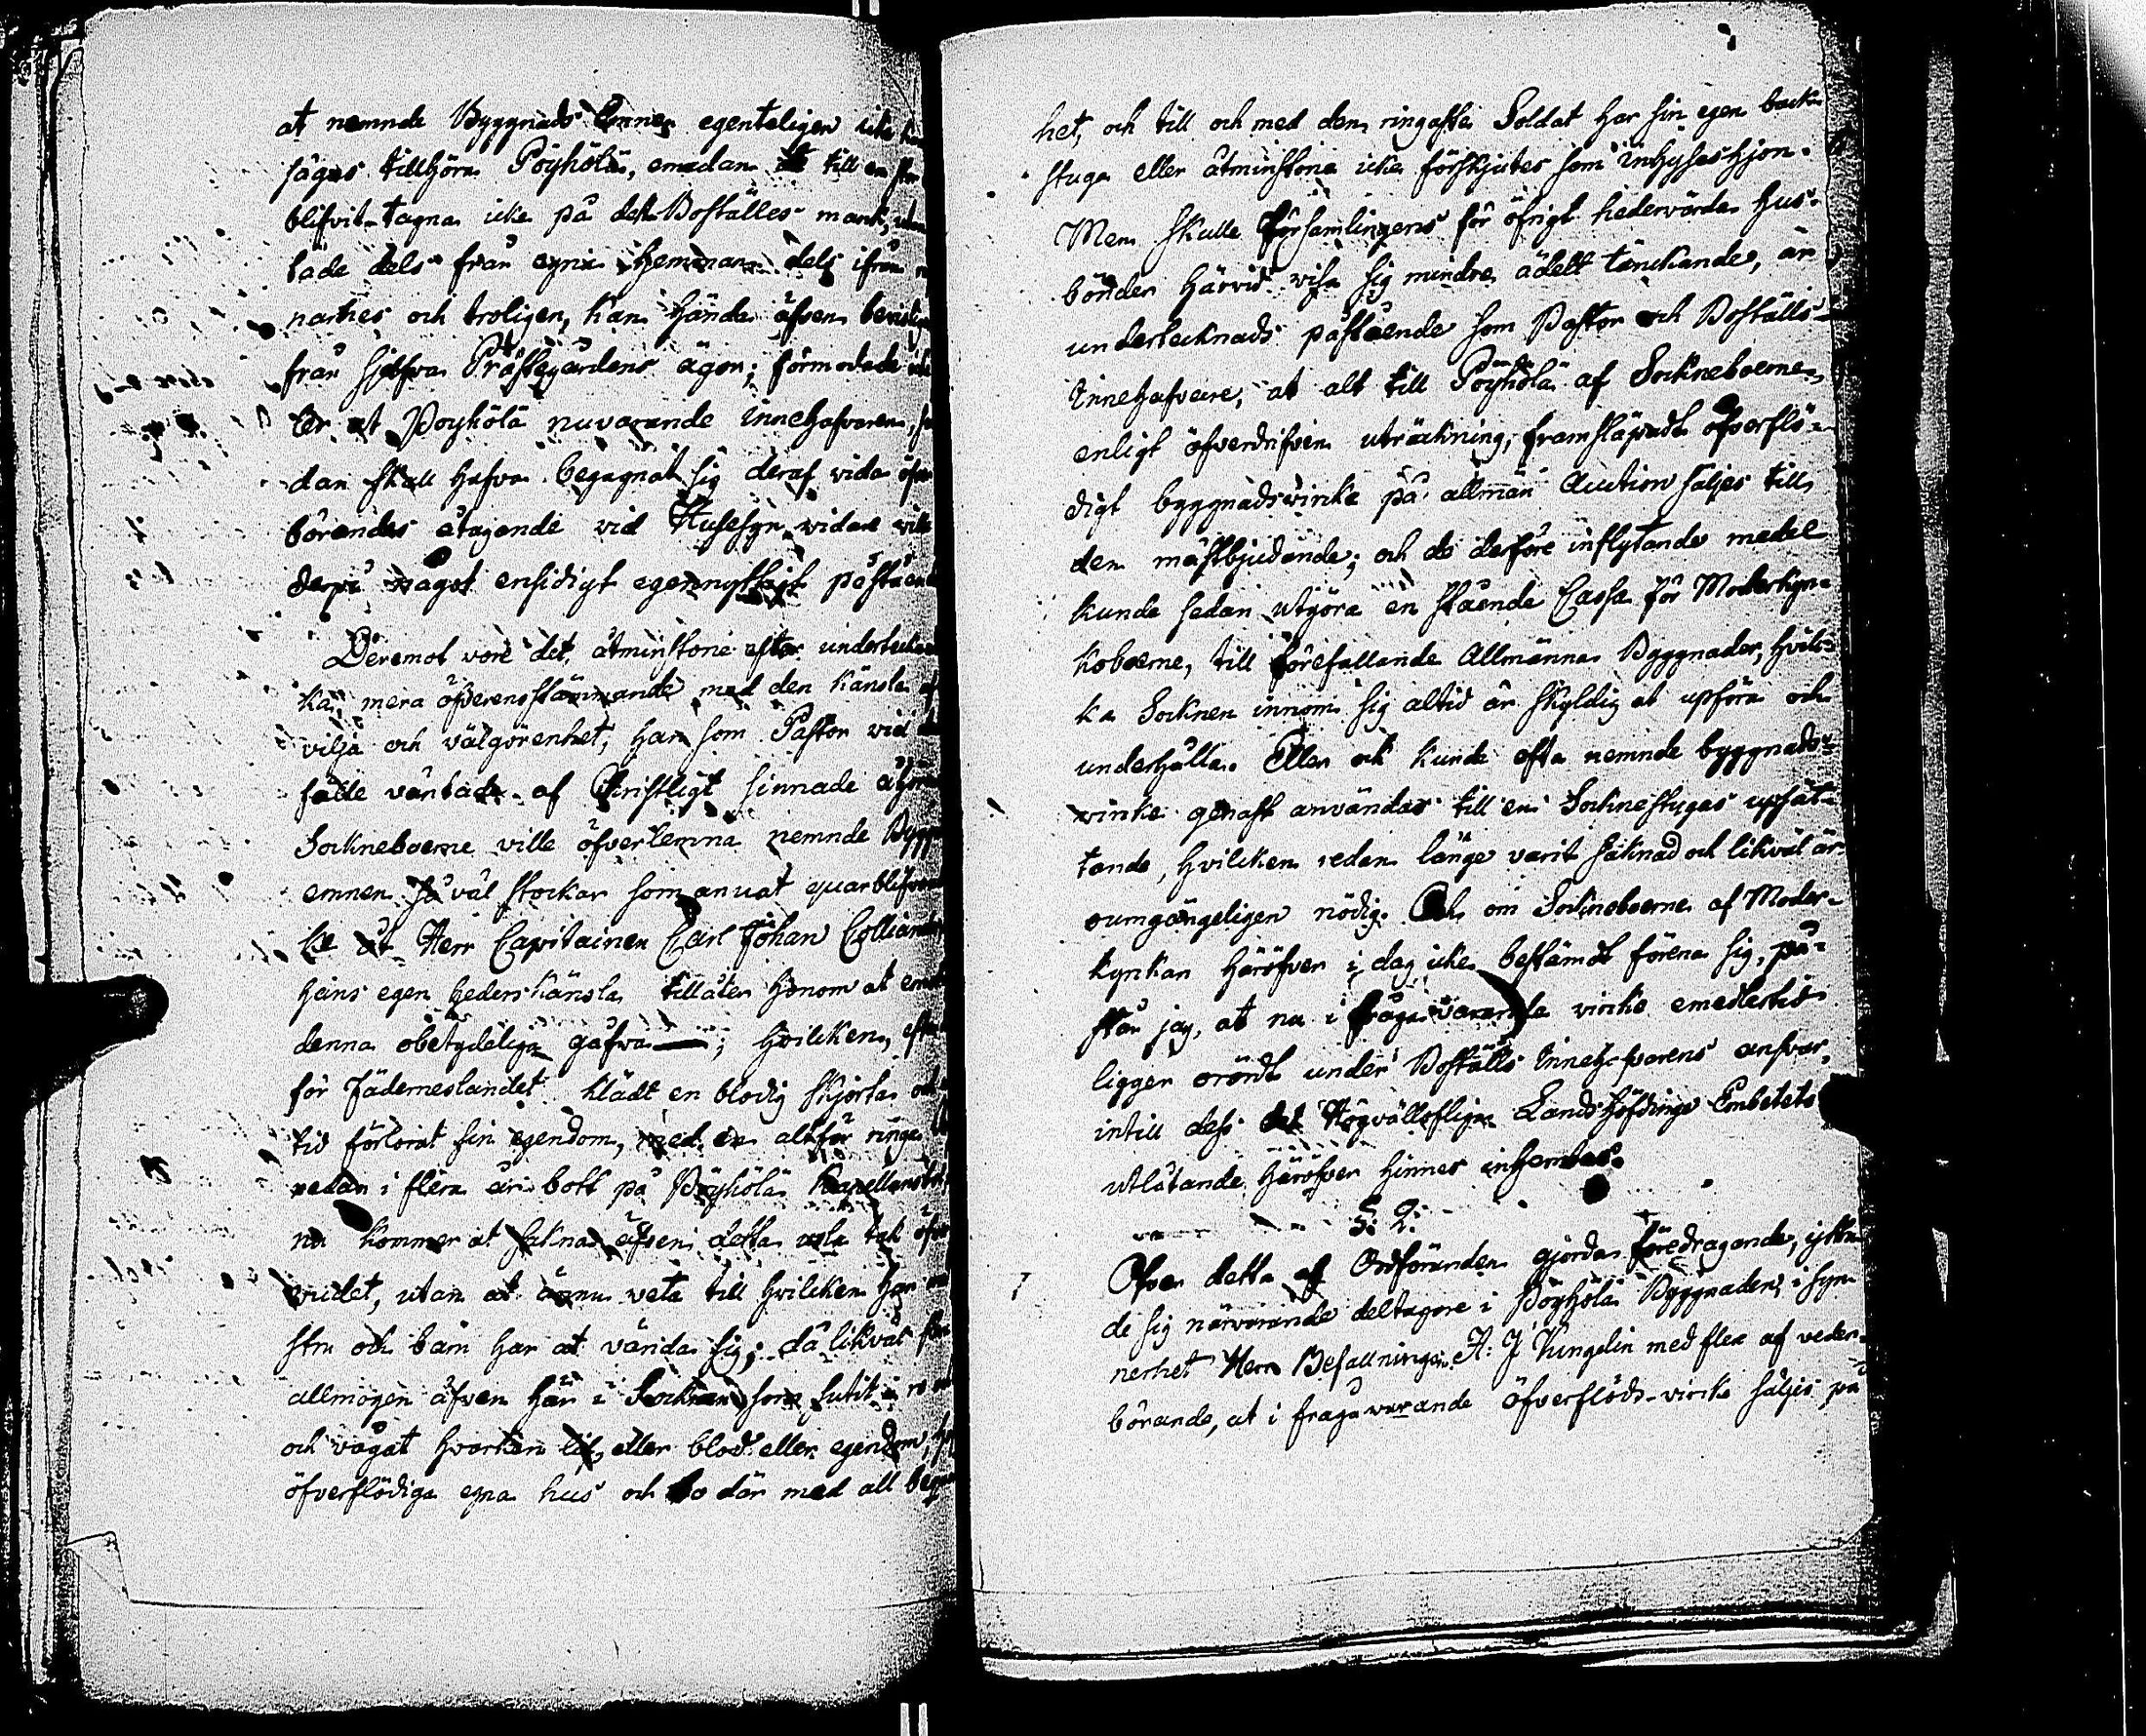 at nemnde Byggnads Emnen egenteligen icke
sägas tillhöra Pöyhölä, emedan de till en stor
blifvit tagna icke på dett Boställes mark, utan
tade dels från egna Hemman dels ifrån
narnes och troligen, kan hända äfven
från sjelfva Prästegårdens ägor; förmodade
ler at Pöyhölä nuvarande innehafvaren,
dan skall hafva begagnat sig deraf vida öfver
börandes åtagande vid Husesyn widare
derpå något ensidigt egennyttigt påstående
Deremot vore det, åtminstone efter undertecknad
ka, mera öfverensstämmande med den känsla af
vilja och välgörenhet, han som Pastor vid
fälle väntade af Christligt sinnade
Sockneboerne ville öfverlemna nemnde Bygg
emnen så väl stockar som annat quarblifvet
ke åt Herr Capitainen Carl Johan Colliander
hans egen hederskänsla tillåter honom at
denna obetydeliga gåfva —; hvilcken, efter
för Fäderneslandet klädt en blodig skjorta och
tid förlorat sin egendom, med en altför ringa
redan i flera år bott på Pöyhölä Kapellans
nu kommer at sakna äfven detta usla tak öfver
vudet, utan at ännu veta till hvilcken han
stru och barn har at vända sig; då likväl
allmogen äfven här i Socknen som sutit i ro
och vågat hvarken lif, eller blod eller egendom,
öfverflödiga egna hus och bo där med all beqväm
het, och till och med den ringaste Soldat har sin egen back
stuga eller åtminstone icke förskjutes som inhyseshjon.
Men skulle Församlingens för öfrigt hedervärda Hus-
bönder härvid visa sig mindre ädelt tänckande, är
undertecknads påstående som Pastor och Boställs-
Innehafvare, at alt till Pöyhölä af Sockneboerne,
enligt öfverdrifven uträckning, framsläpadt öfverflö-
digt byggnadsvirike på allmän Auction säljes till
den mästbjudande; och de derföre inflytande medel
kunde sedan utgöra en stående Cassa för Moderkyr-
koboerne, till förefallande Allmänna Byggnader, hvil-
ka Socknen innom sig altid är skyldig at upföra och
underhålla. Eller ock kunde ofta nemnde byggnads-
virike genast användas till en Socknestugas upsät-
tande, hvilcken redan länge varit saknad och likväl är
oumgängeligen nödig. Och om Sockneboerne af Moder-
kyrkan häröfver i dag icke bestämdt förena sig, på-
står jag, at nu i frågavarande virike emedlertid
ligger orördt under Boställs Innehafvarens ansvar,
intill dess det Högvällofliga Landshöfdinge Embetets
utlåtande häröfver hinner inhemtas.
§. 2.
Öfver detta af Ordföranden gjorda föredragande, yttra
de sig närvarande deltagare i Pöyhölä Byggnaden, i syn
nerhet Herr Befallningsm. A: J: Kungelin med flea af veder-
börande, at i fråga varande öfverflöds-virike säljes på